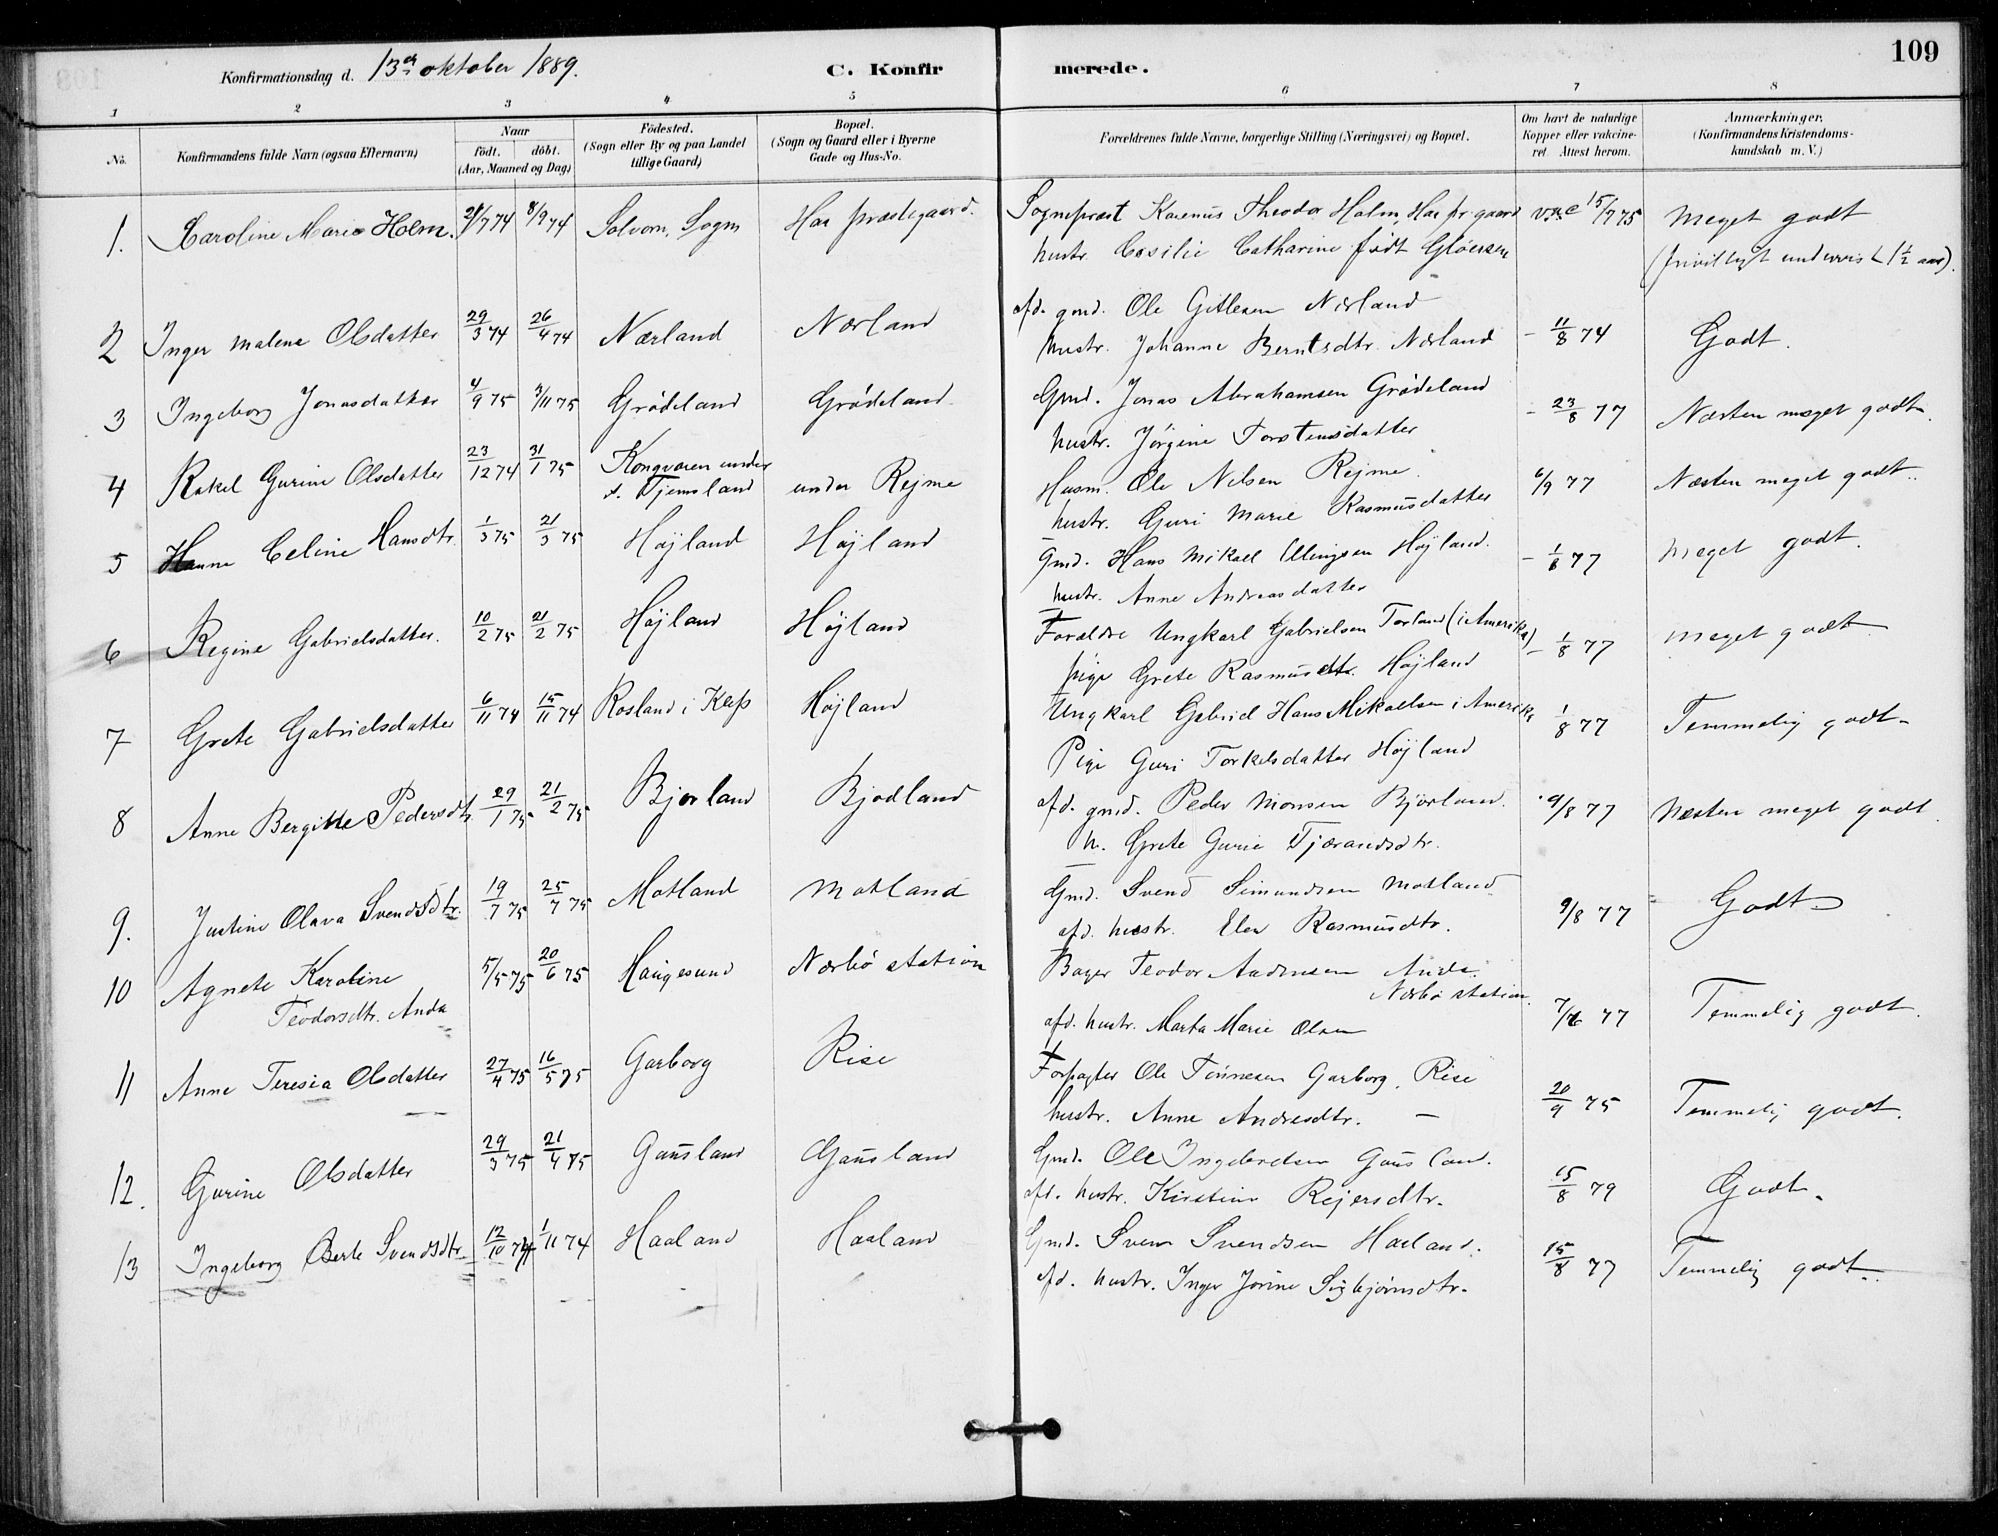 109
Konfirmationsdag d. 13de oktober 1889. C. Konfirmerede.
1 2 3 4 5 6 7 8
No. Konfirmandens fulde Navn (ogsaa Efternavn) Naar født. døbt. (Aar, Maaned og Dag) Fødested. (Sogn eller By og paa Landet tillige Gaard) Bopæl. (Sogn og Gaard eller i Byerne Gade og Hus-No. Forældrenes fulde Navne, borgerlige Stilling (Næringsvei) og Bopæl. Om havt de naturlige Kopper eller vakcineret. Attest herom. Anmærkninger. (Konfirmandens Kristendomskundskab m. V.)
1. Karoline Marie Holm. 21/7 74 8/9 74 Solvorn, Sogn Haa præstegaard. Sognepræst Karenus Theodor Holm, Haa pr.gaard 15/7 75 Meget godt
hustr. Cesilie Catharine født Gløersen (privilligt undervist 1½ aar).
2 Inger Malene Olsdatter 29/3 74 26/4 74 Nærland Nærland afd. gmd. Ole Gitlesen Nærland
hustr. Johanne Berntsdtr. Nærland – 11/8 74 Godt.
3 Ingeborg Jonasdatter 4/9 75 7/11 75 Grødeland Grødeland Gmd. Jonas Abrahamsen Grødeland – 23/8 77 Næsten meget godt.
hustr. Jørgine Torstensdatter
4 Rakel Gurine Olsdatter 23/12 74 31/1 75 Kongvaren under s. Tjemsland under Rejme Husm. Ole Nilsen Rejme. 6/9 77 Næsten meget godt.
hustr. Guri Marie Rasmusdatter
5 Hanne Celine Hansdtr. 1/3 75 21/3 75 Højland Højland Gmd. Hans Mikael Ellingsen Højland. – 1/8 77 Meget godt.
hustr. Anne Andreasdatter
6 Regine Gabrielsdatter. 10/2 75 21/2 75 Højland Højland Forældre Ungkarl Gabrielsen Torland (i Amerika) – 1/8 77 Meget godt
pige Grete Rasmusdtr. Højland
7 Grete Gabrielsdatter 6/11 74 15/11 74 Rosland i Klep Højland Ungkarl Gabriel Hans Mikaelsen i Amerika 1/8 77 Temmelig godt
Pige Guri Torkelsdatter Højland
8 Anne Bergitte Pedersdt. 29/1 75 21/2 75 Bjorland Bjodland afd. gmd. Peder Monsen Bjorland. 9/8 77 Næsten meget godt
h. Grete Gurie Tjærandsdtr.
9. Justine Olava Svendsdtr. 19/7 75 25/7 75 Motland Motland Gmd. Svend Simundsen Motland 9/8 77 Godt
afd. hustr. Elen Rasmusdtr.
10 Agnete Karoline Teodorsdtr. Anda 5/5 75 20/6 75 Haugesund Nærbø station Bager Teodor Andersen Anda. Nærbø station. 7/6 77 Temmelig godt.
afd. hustr. Marta Marie Olsen
11 Anne Teresia Olsdatter 27/4 75 16/5 75 Garborg Rise Forpagter Ole Tønnesen Garborg, Rise 20/9 75 Temmelig godt.
hustr. Anne Andresdtr. –
12. Gurine Olsdatter 29/3 75 21/4 75 Gausland Gausland Gmd. Ole Ingebretsen Gausland. 15/8 79 Godt.
afd. hustr. Kirstine Rejersdtr.
13 Ingeborg Berte Svendsdtr. 12/10 74 1/11 74 Haaland Haaland Gmd. Sven Svendsen Haaland. 15/8 77 Temmelig godt.
afd. hustr. Inger Jorine Sigbjørnsdtr.